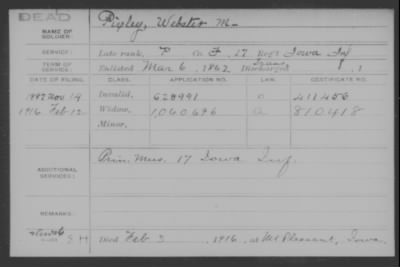 DEAD
NAME OF SOLDIER: Pixley, Webster M.
SERVICE: Late rank, P Co. F, 17 Reg't Iowa Inf
TERM OF SERVICE: Enlisted Mar 6, 1862 Discharged , 1
DATE OF FILING. CLASS. APPLICATION NO. LAW. CERTIFICATE NO.
Nov 19 Invalid, 628991 418456
1916 Feb 12 Widow, 1,060,696 a 810418
Minor,
ADDITIONAL SERVICES: Mus. 17 Iowa Inf.
REMARKS:
Died Feb 3, 1916, at Mt Pleasant, Iowa.